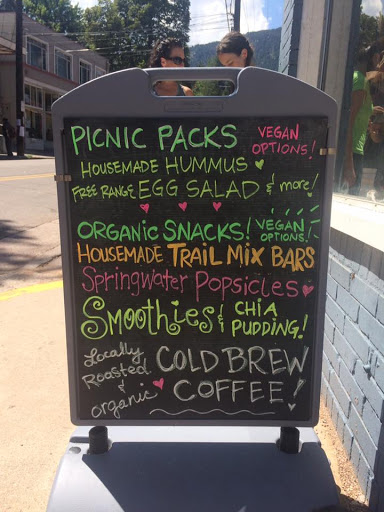 PICNIC PACKS VEGAN OPTIONS!
HOUSEMADE HUMMUS
FREE RANGE EGG SALAD & more!
ORGANIC SNACKS! VEGAN OPTIONS!
HOUSEMADE TRAIL MIX BARS
Springwater Popsicles
Smoothies & CHIA PUDDING!
Locally Roasted & organic COLD BREW COFFEE!